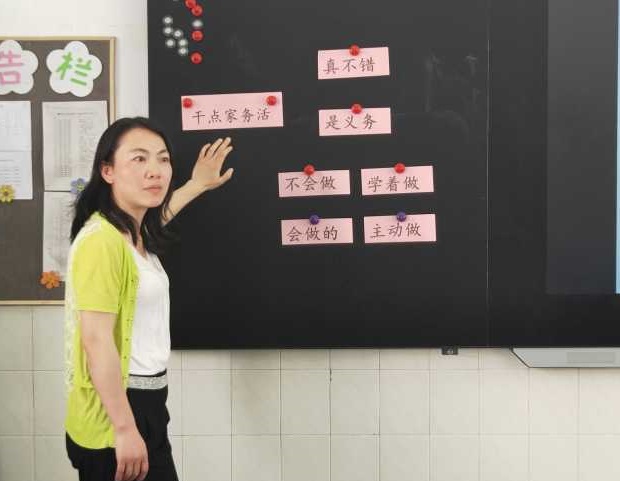 告栏
真不错
干点家务活
是义务
不会做 学着做
会做的 主动做